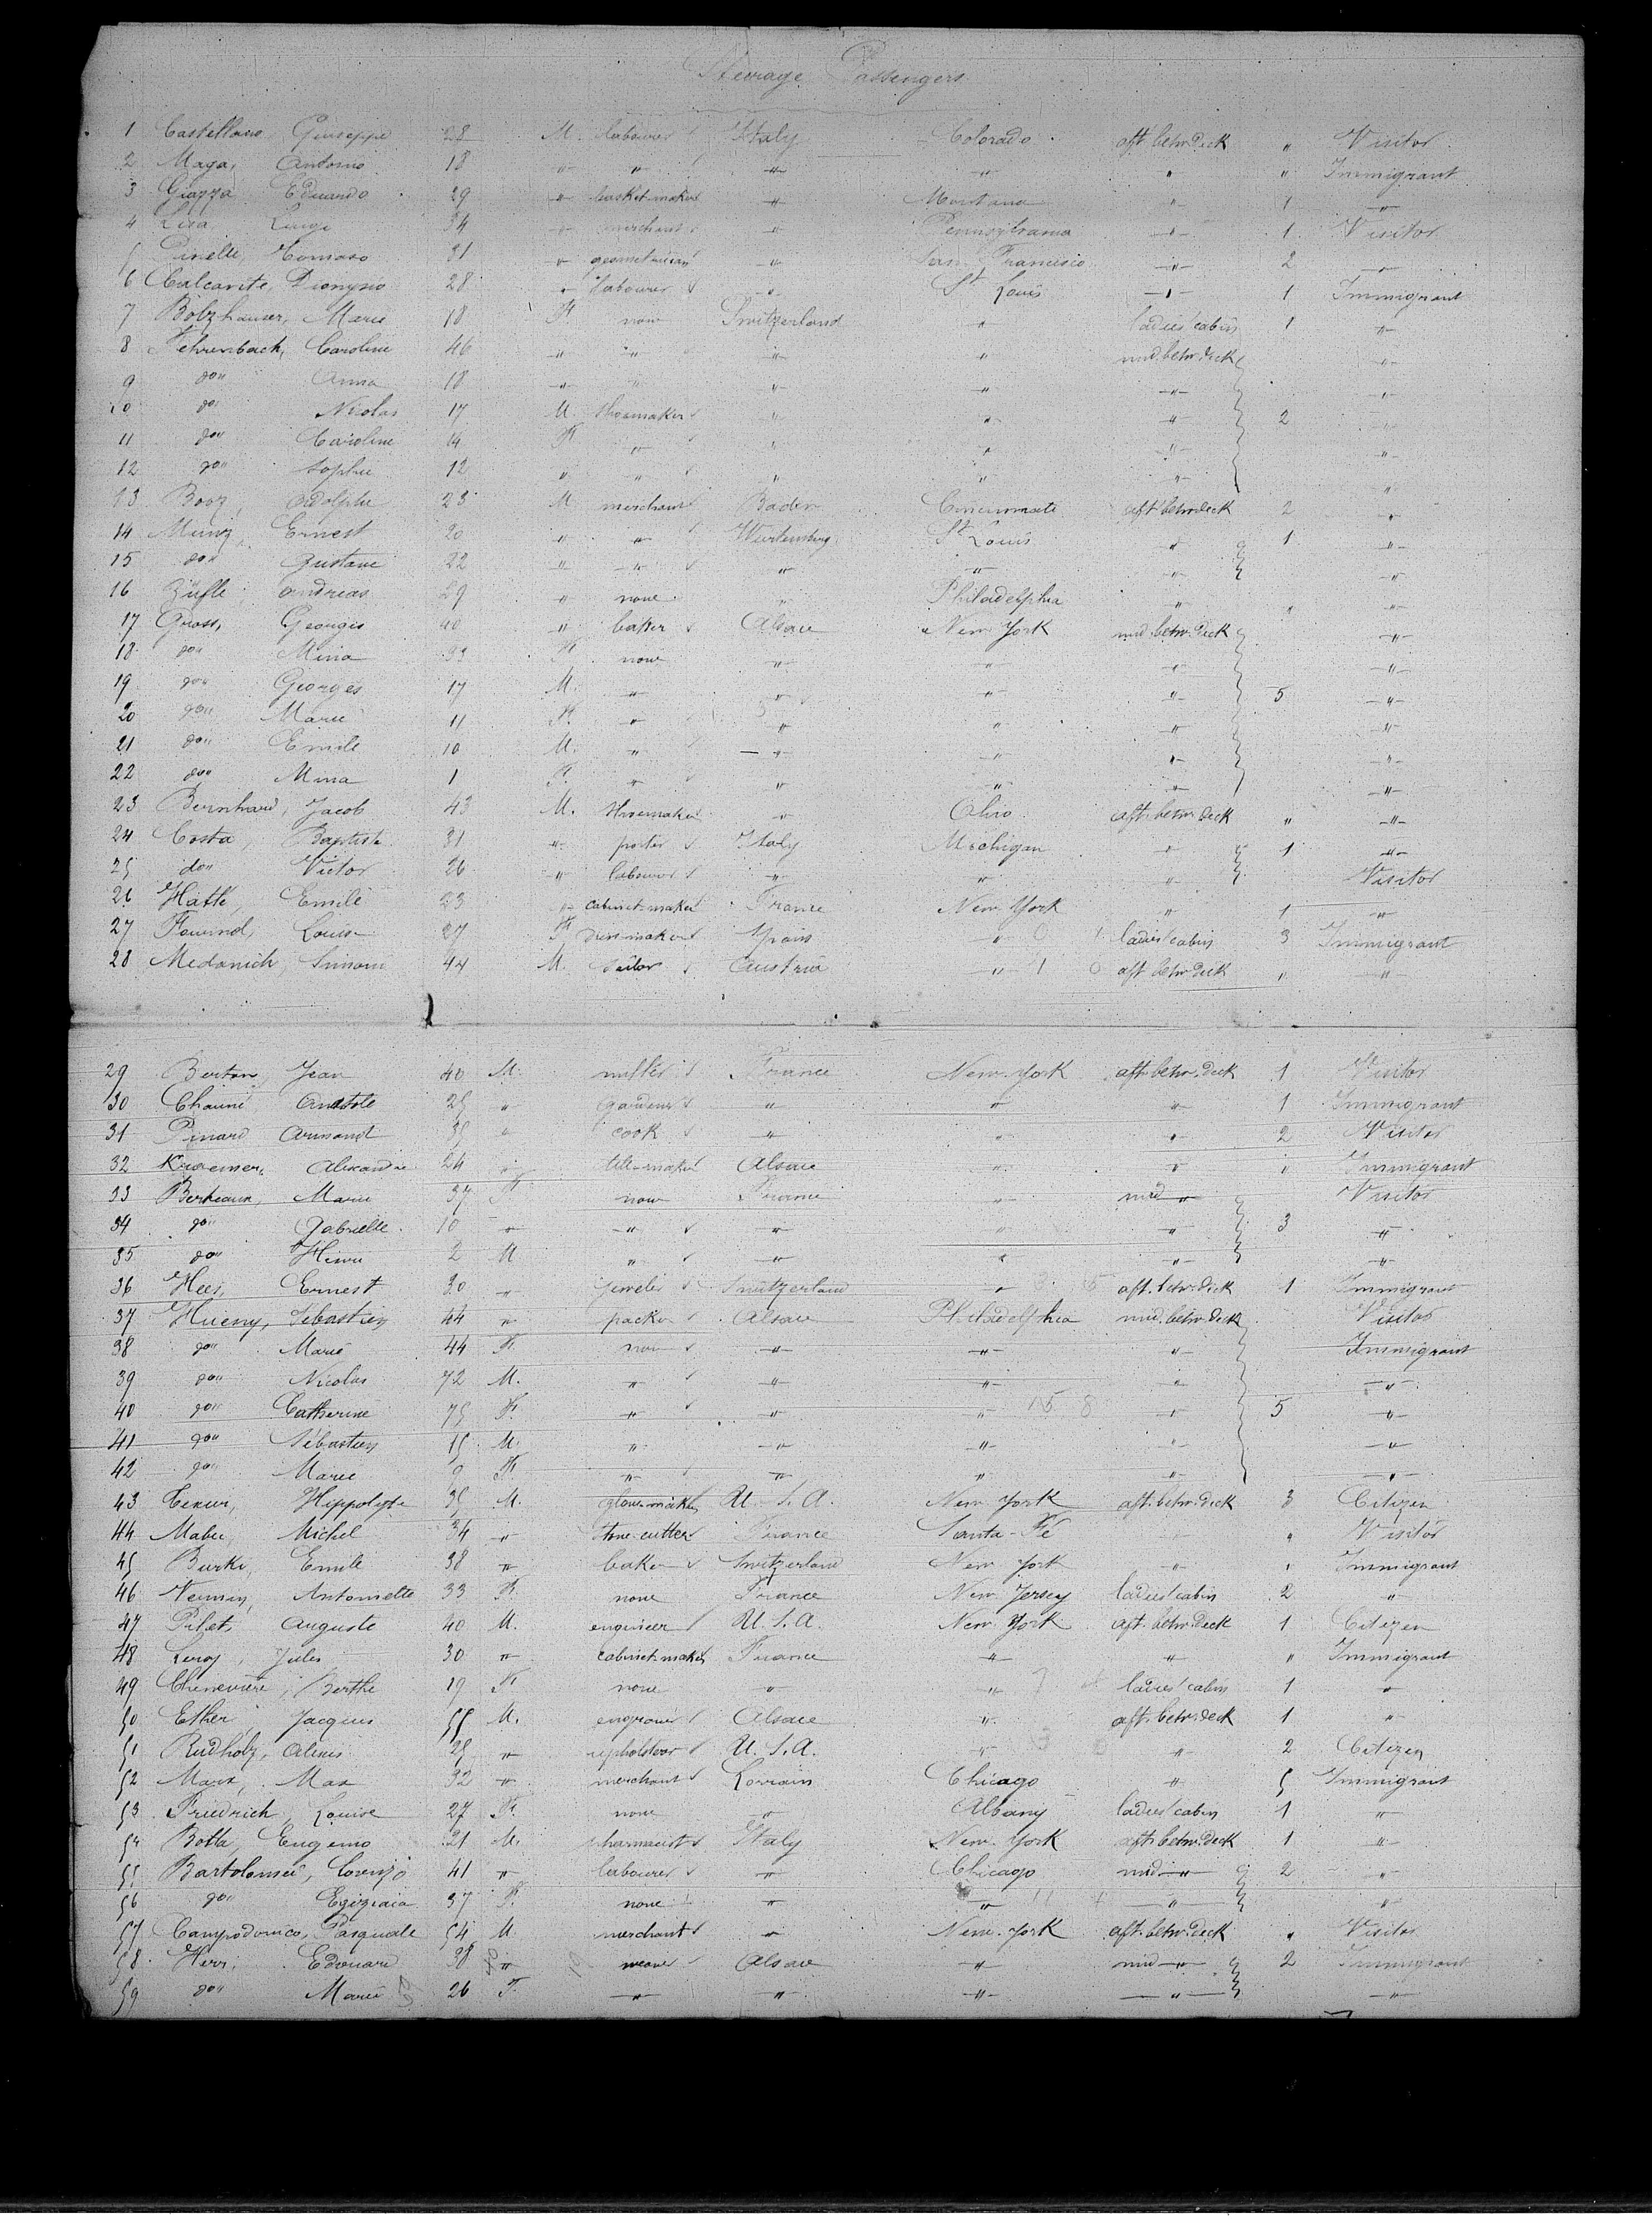 Steerage Passengers
1 Castellano Giuseppe 28 M. labourer Italy Colorado aft. betw. deck " Visitor
2 Maga, Antonio 18 " " " " " " Immigrant
3 Giazza Eduardo 29 " basket-maker " Montana " 1 "
4 Lisa Luigi 34 " merchant " Pennsylvania " 1 Visitor
5 Pinelli, Tomaso 31 " " San Francisco " 2 "
6 Calcarite, Dionysio 28 " labourer " St Louis " 1 Immigrant
7 Bölzhauser, Marie 18 F. none Switzerland " ladies' cabin 1 "
8 Fehrenbach, Caroline 46 " " " " mid. betw. deck "
9 do" Anna 18 " " " " " "
10 do" Nicolas 17 M. shoemaker " " " 2 "
11 do" Caroline 14 F. " " " " "
12 do" Sophie 12 " " " " " "
13 Booz, Adolphe 23 M. merchant Baden Cincinnati aft betw. deck 2 "
14 Munz, Ernest 20 " " Würtemberg St Louis " 1 "
15 do" Gustave 22 " " " " " "
16 Züfle, Andreas 29 " none " Philadelphia " " "
17 Gross, Georges 40 " baker Alsace New York mid. betw. deck "
18 do" Mina 33 F. none " " " "
19 do" Georges 17 M. " " " " 5 "
20 do" Marie 11 F. " " " " "
21 do" Emile 10 M. " " " " "
22 do" Mina 1 F. " " " " "
23 Bernhard, Jacob 43 M. shoemaker " Ohio aft. betw. deck " "
24 Costa, Baptiste 31 " porter Italy Michigan " 1 "
25 do" Victor 26 " labourer " " " Visitor
26 Hatté, Emile 23 " cabinet-maker France New York " 1 "
27 Louise 27 F. dressmaker Spain " ladies' cabin 3 Immigrant
28 Medanich, Simoni 44 M. sailor Austria " aft. betw. deck " "
29 Berton, Jean 40 M. miller France New York aft. betw. deck 1 Visitor
30 Chauné Anatole 25 " gardener " " " 1 Immigrant
31 Pinard Armand 35 " cook " " " 2 Visitor
32 Kraemer, Alexandre 24 " Alsace " " " Immigrant
33 Berteaux, Marie 37 F. none France " mid " Visitor
34 do" Gabrielle 10 " " " " " 3 "
35 do" Henri 2 M " " " " "
36 Hees, Ernest 30 " jeweler Switzerland " aft. betw. deck 1 Immigrant
37 Hueny, Sebastien 44 " packer Alsace Philadelphia mid. betw. deck Visitor
38 do" Marie 44 F. none " " " Immigrant
39 do" Nicolas 72 M. " " " " "
40 do" Catherine 75 F. " " " " 5 "
41 do" Sébastien 15 M. " " " " "
42 do" Marie 9 F. " " " " "
43 Hippolyte 35 M. glove-maker U.S.A. New York aft. betw. deck 3 Citizen
44 Mabu, Michel 34 " stone-cutter France Santa-Fé " " Visitor
45 Burki, Emile 38 " baker Switzerland New York " " Immigrant
46 Antoinette 33 F. none France New Jersey ladies' cabin 2 "
47 Pilet, Auguste 40 M. engineer U.S.A. New York aft. betw. deck 1 Citizen
48 Leroy, Jules 30 " cabinet-maker France " " " Immigrant
49 Chenevière, Berthe 19 F. none " " ladies' cabin 1 "
50 Esther Jacques 55 M. engraver Alsace " aft. betw. deck 1 "
51 Rudholz, Alexis 25 " upholsterer U.S.A. " " 2 Citizen
52 Marx, Max 32 " merchant Lorrain Chicago " 5 Immigrant
53 Friedrich, Louise 27 F. none " Albany ladies' cabin 1 "
54 Botta, Eugenio 21 M. pharmacist Italy New York aft. betw. deck 1 "
55 Bartolomei, Lorenzo 41 " labourer " Chicago mid " 2 "
56 do" Egiziaca 37 F. none " " " "
57 Campodonico, Pasquale 54 M merchant " New York aft. betw. deck " Visitor
58 Herr, Edouard 38 " weaver Alsace " mid " 2 Immigrant
59 do" Marie 26 F. " " " " "